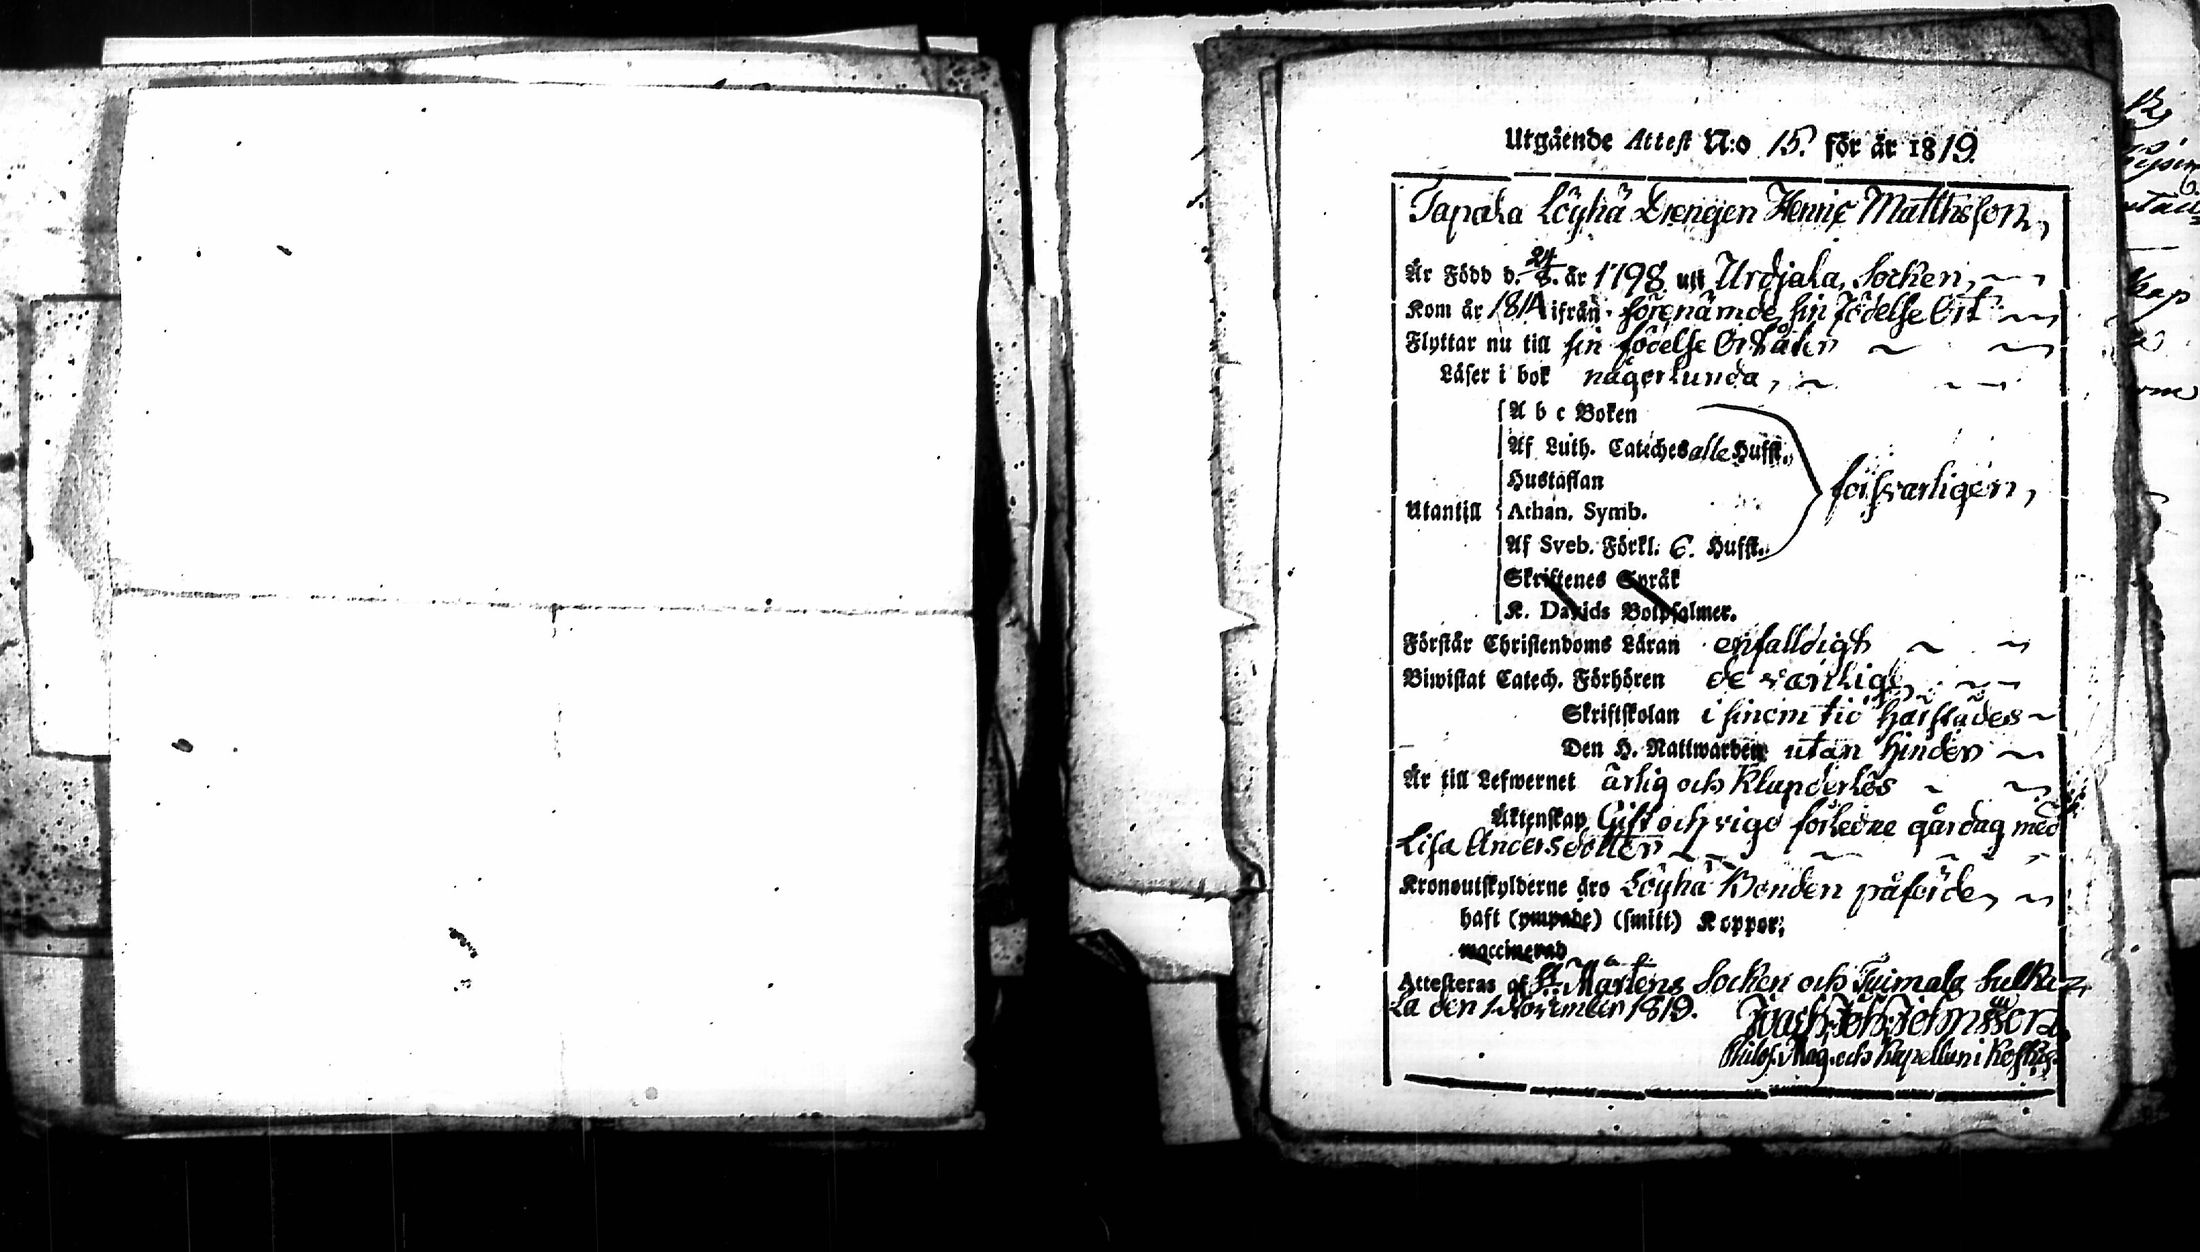 Utgående Attest N:o 15. för år 1819.
Tapala Löyhä Drengen Henric Matthsson,
Är Född d. 24/8. år 1798 uti Urdjala Socken,
Kom år 1814 ifrån förenämde sin Födelse Ort
Flyttar nu till sin födelse Ort åter
Läser i bok någorlunda,
A b c Boken
Af Luth. Cateches alle Hufst.
Hustaflan
försvarligen,
Utantill Athan. Symb.
Af Sveb. Förkl. 6. Hufst.
Skriftenes Språk
K. Davids Botpsalmer.
Förstår Christendoms Läran enfalldigt
Biwistat Catech. Förhören de vanlige
Skriftskolan i sinom tid härstädes
Den H. Nattwarden utan hinder
Är till Lefwernet ärlig och Klanderlös
Äktenskap Gift och vigd förledne gårdag med
Lisa Andersdotter
Kronoutskylderne äro Löyhä Bonden påförde,
haft (ympade) (smitt) Koppor;
waccinerad
Attesteras af St. Mårtens Socken och
la den 1 November 1819.
Philos. Mag. och Kapellan i Koskis.